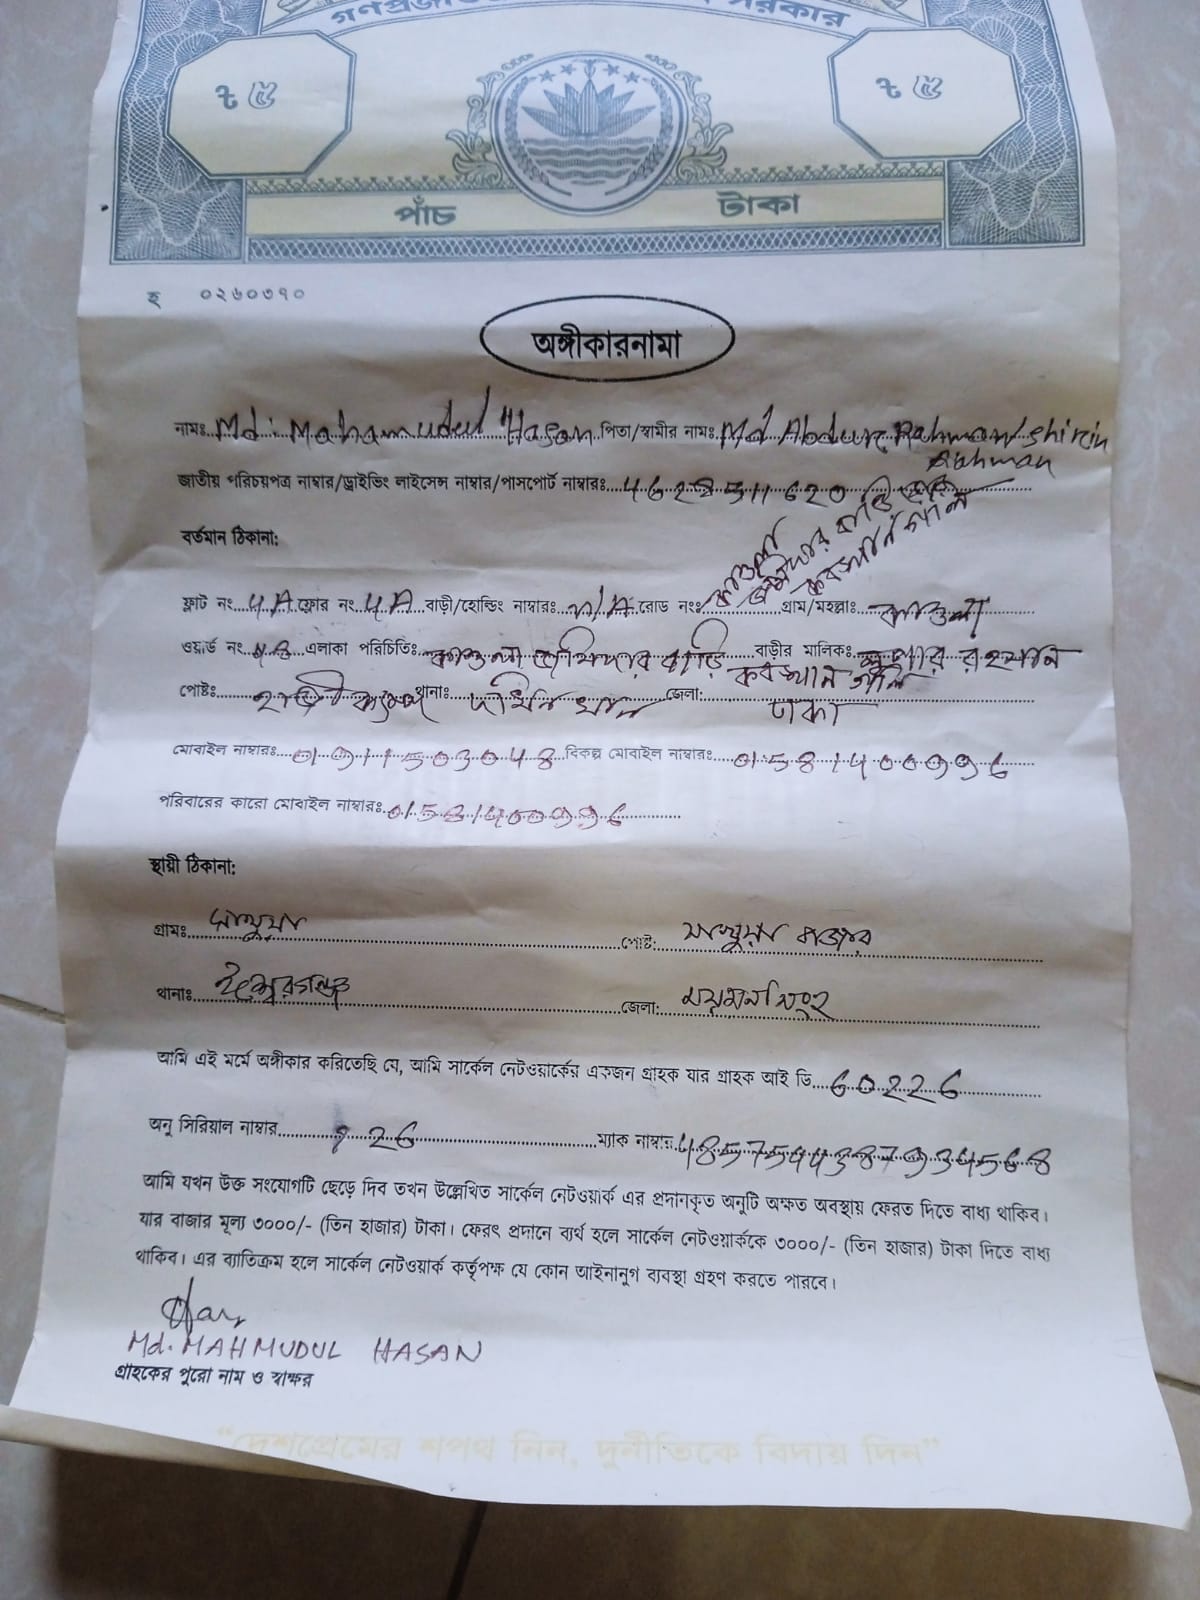 গণপ্রজাতন্ত্রী সরকার
৳ ৫ ৳ ৫
পাঁচ টাকা
হ ০২৬০৩৭০
অঙ্গীকারনামা
নামঃ Md: Mahamudul Hasan পিতা/স্বামীর নামঃ Md Abdur Rahman/shirin
Rahman
জাতীয় পরিচয়পত্র নাম্বার/ড্রাইভিং লাইসেন্স নাম্বার/পাসপোর্ট নাম্বারঃ
বর্তমান ঠিকানা:
ফ্লাট নং 4A ফ্লোর নং 4A বাড়ী/হোল্ডিং নাম্বারঃ N/A রোড নংঃ কাওলা জমিদার বাড়ি কবস্থান গলি গ্রাম/মহল্লাঃ কাওলা
ওয়ার্ড নং এলাকা পরিচিতিঃ কাওলা জমিদার বাড়ি কবস্থান গলি বাড়ীর মালিকঃ রহমান
পোষ্টঃ থানাঃ দক্ষিনখান জেলা: ঢাকা
মোবাইল নাম্বারঃ 01911503048 বিকল্প মোবাইল নাম্বারঃ 01581400996
পরিবারের কারো মোবাইল নাম্বারঃ 01581400996
স্থায়ী ঠিকানা:
গ্রামঃ পোষ্ট: বাজার
থানাঃ ঈশ্বরগঞ্জ জেলা: ময়মনসিংহ
আমি এই মর্মে অঙ্গীকার করিতেছি যে, আমি সার্কেল নেটওয়ার্কের একজন গ্রাহক যার গ্রাহক আই ডি 60226
অনু সিরিয়াল নাম্বার 126 ম্যাক নাম্বার 4857544387934568
আমি যখন উক্ত সংযোগটি ছেড়ে দিব তখন উল্লেখিত সার্কেল নেটওয়ার্ক এর প্রদানকৃত অনুটি অক্ষত অবস্থায় ফেরত দিতে বাধ্য থাকিব।
যার বাজার মূল্য ৩০০০/- (তিন হাজার) টাকা। ফেরৎ প্রদানে ব্যর্থ হলে সার্কেল নেটওয়ার্ককে ৩০০০/- (তিন হাজার) টাকা দিতে বাধ্য
থাকিব। এর ব্যতিক্রম হলে সার্কেল নেটওয়ার্ক কর্তৃপক্ষ যে কোন আইনানুগ ব্যবস্থা গ্রহণ করতে পারবে।
Md. MAHMUDUL HASAN
গ্রাহকের পুরো নাম ও স্বাক্ষর
“দেশপ্রেমের শপথ নিন, দুর্নীতিকে বিদায় দিন”